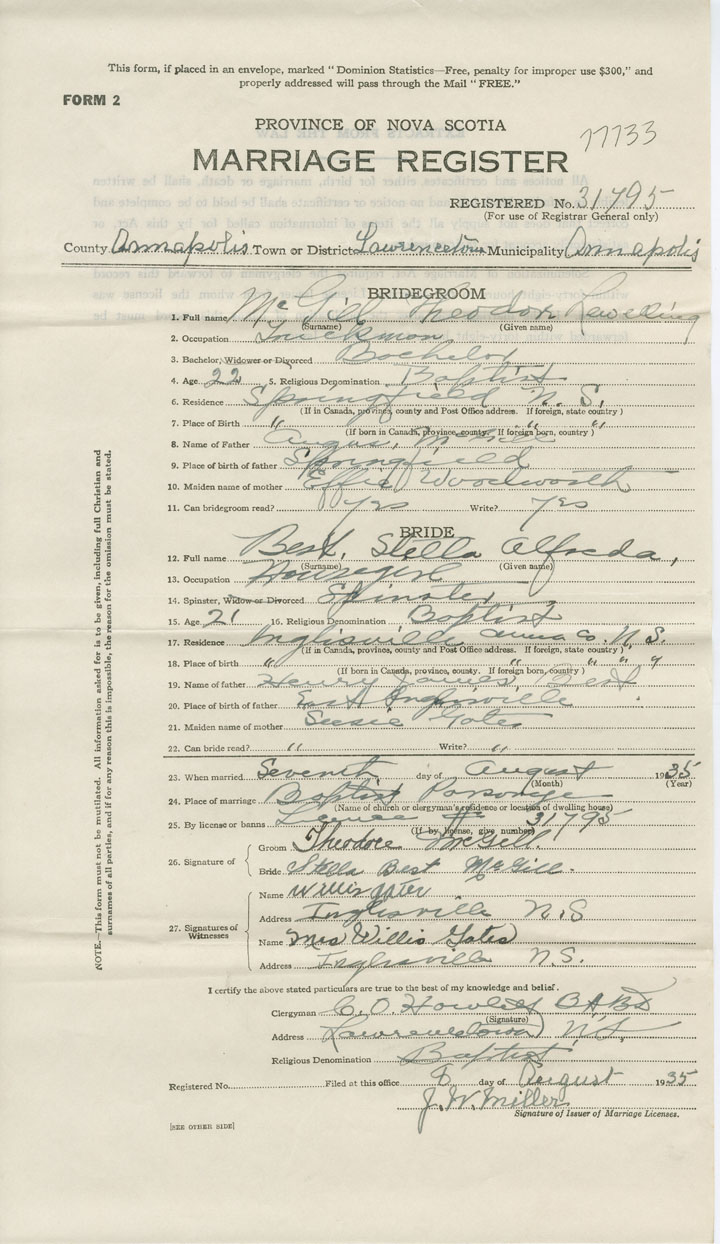 This form, if placed in an envelope, marked "Dominion Statistics—Free, penalty for improper use $300," and
properly addressed will pass through the Mail "FREE."
FORM 2
PROVINCE OF NOVA SCOTIA
77733
MARRIAGE REGISTER
REGISTERED No. 31795
(For use of Registrar General only)
County Annapolis Town or District Lawrencetown Municipality Annapolis
BRIDEGROOM
1. Full name McGill Theodore Lewelling
(Surname) (Given name)
2. Occupation Truckman
3. Bachelor, Widower or Divorced Bachelor
4. Age 22 5. Religious Denomination Baptist
6. Residence Springfield N. S.
(If in Canada, province, county and Post Office address. If foreign, state country)
7. Place of Birth " " "
(If born in Canada, province, county. If foreign born, country)
8. Name of Father Angus McGill
9. Place of birth of father Springfield
10. Maiden name of mother Effie Woodworth
11. Can bridegroom read? yes Write? yes
BRIDE
12. Full name Best, Stella Alfreda,
(Surname) (Given name)
13. Occupation Housegirl
14. Spinster, Widow or Divorced Spinster
15. Age 21 16. Religious Denomination Baptist
17. Residence Inglisville Anna Co. N. S.
(If in Canada, province, county and Post Office address. If foreign, state country)
18. Place of birth " " " "
(If born in Canada, province, county. If foreign born, country)
19. Name of father Henry James Best
20. Place of birth of father East Inglisville
21. Maiden name of mother Susie Gates
22. Can bride read? " Write? "
23. When married Seventh day of August 1935
(Month) (Year)
24. Place of marriage Baptist Parsonage
(Name of church or clergyman's residence or location of dwelling house)
25. By license or banns License # 31795
(If by license, give number)
26. Signature of
Groom Theodore McGill.
Bride Stella Best McGill.
27. Signatures of Witnesses
Name Willis Gates
Address Inglisville N.S
Name Mrs Willis Gates
Address Inglisville N.S.
I certify the above stated particulars are true to the best of my knowledge and belief.
Clergyman C. O. B.A. B.D
(Signature)
Address Lawrencetown N.S.
Religious Denomination Baptist
Registered No. Filed at this office 8 day of August 1935
J. W. Miller
Signature of Issuer of Marriage Licenses.
[SEE OTHER SIDE]
NOTE.—This form must not be mutilated. All information asked for is to be given, including full Christian and
surnames of all parties, and if for any reason this is impossible, the reason for the omission must be stated.